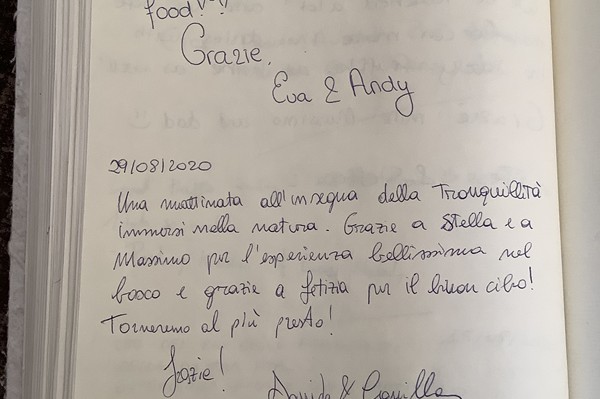 food!!
Grazie,
Eva & Andy
29/08/2020
Una mattinata all'insegna della Tranquillità
immersi nella natura. Grazie a Stella e a
Massimo per l'esperienza bellissima nel
bosco e grazie a Letizia per il buon cibo!
Torneremo al più presto!
Grazie!
Davide & Camilla